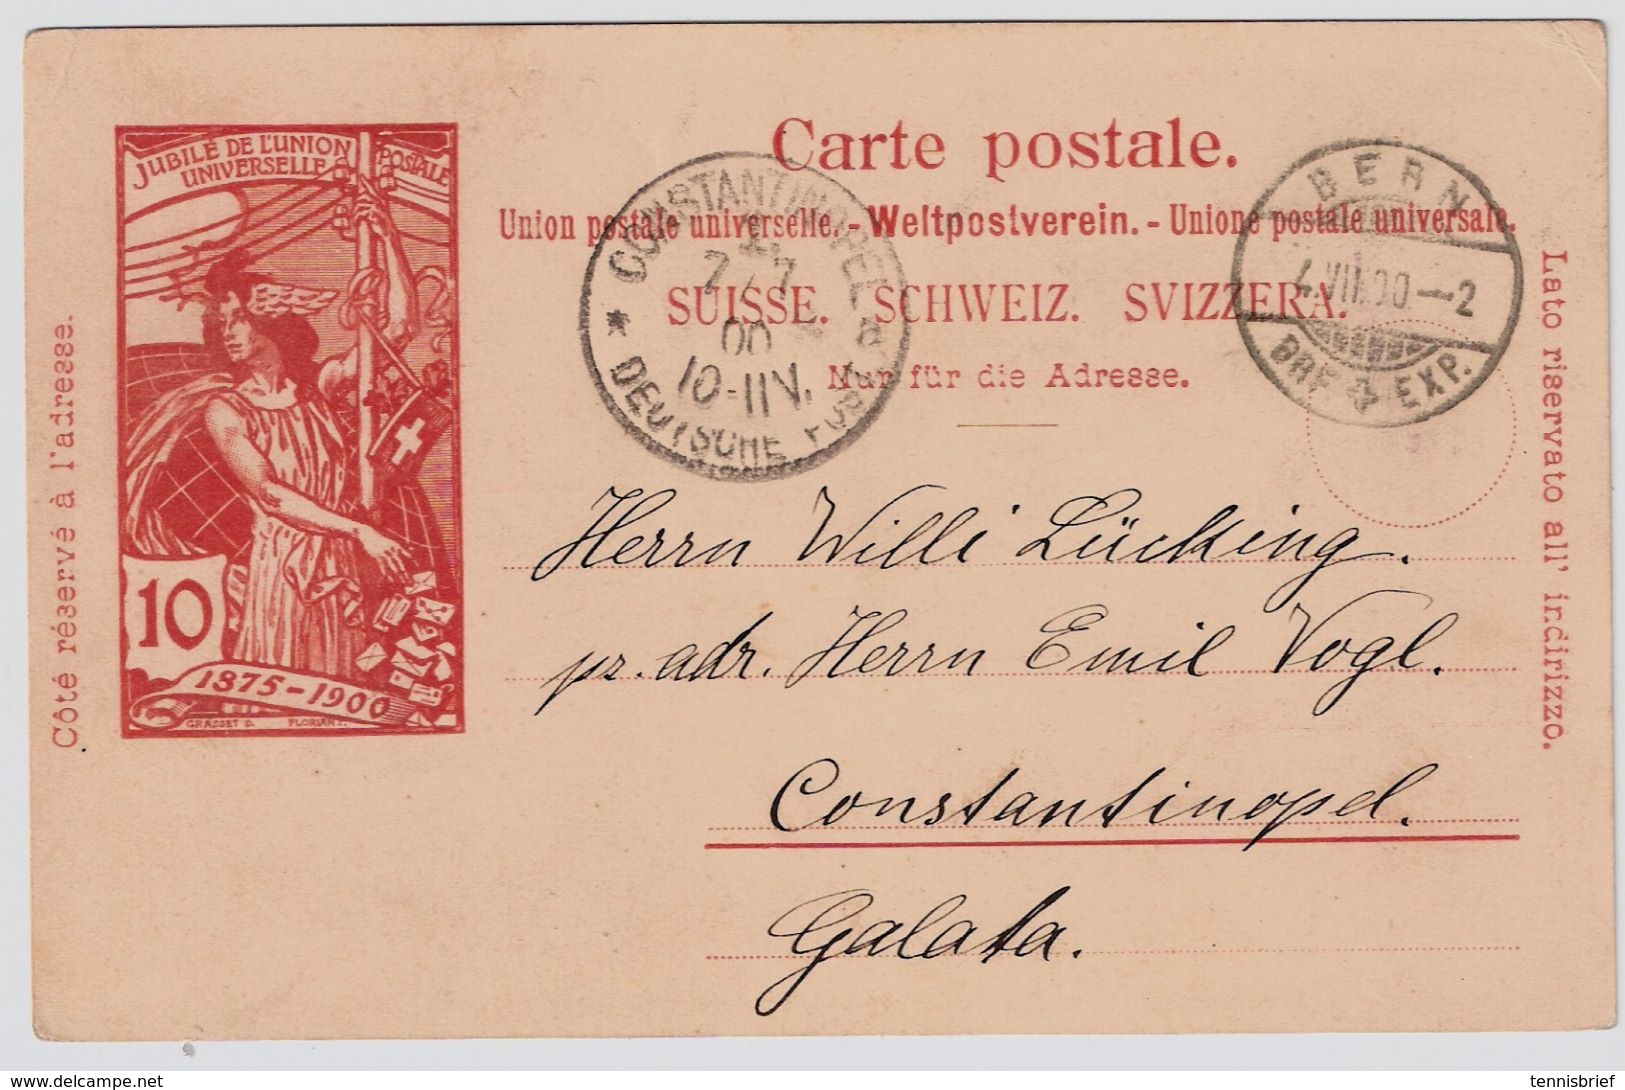 JUBILÉ DE L'UNION
POSTALE
UNIVERSELLE
10
1875-1900
GRASSET D.
Côté réservé à l'adresse.
Carte postale.
Union postale universelle.-Weltpostverein.-Unione postale universale.
SUISSE. SCHWEIZ. SVIZZERA.
Nur für die Adresse.
CONSTANTINOPEL
7/7
00
10-11N.
* DEUTSCHE POST
BERN
4.VII.00-2
BRF EXP.
Lato riservato all' indirizzo.
Herrn Willi Lücking.
pr. adr. Herrn Emil Vogl.
Constantinopel.
Galata.
delcampe.net
tennisbrief